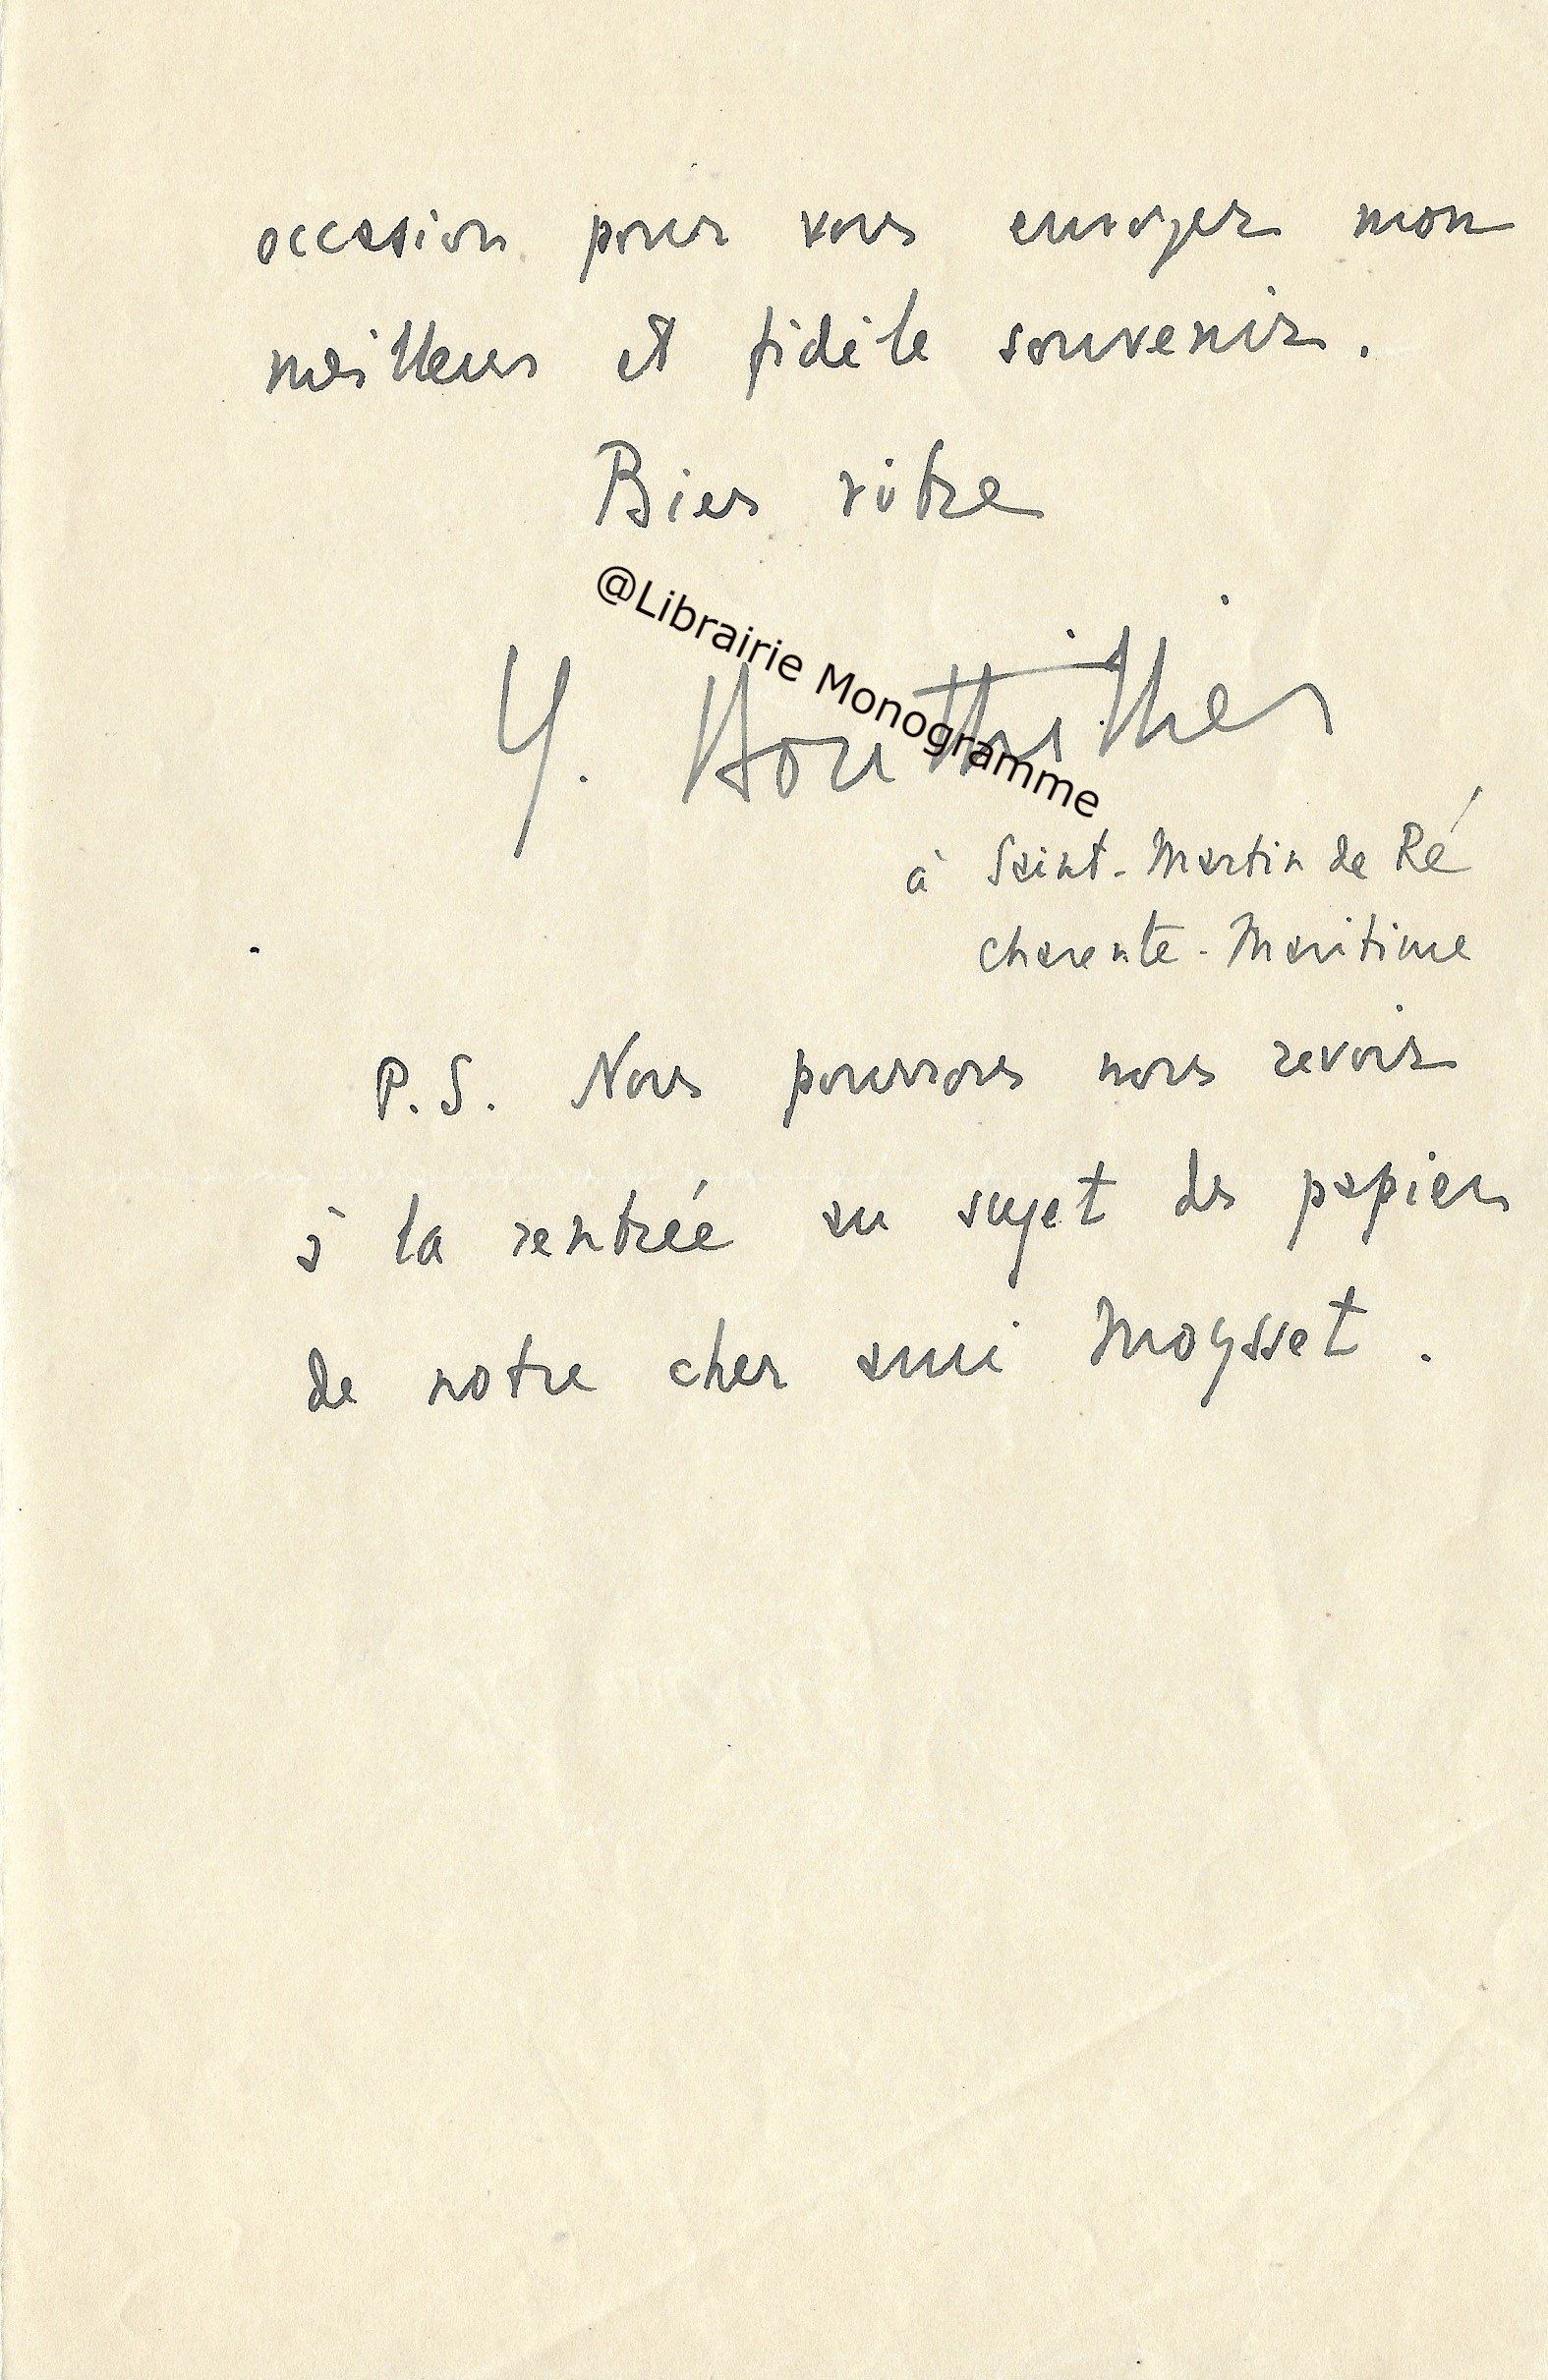 occasion pour vous envoyer mon
meilleur et fidèle souvenir.
Bien vôtre
@Librairie Monogramme
Y.
à Saint-Martin de Ré
Charente-Maritime
P.S. Nous pourrons nous revoir
à la rentrée au sujet des papiers
de notre cher ami Moysset.